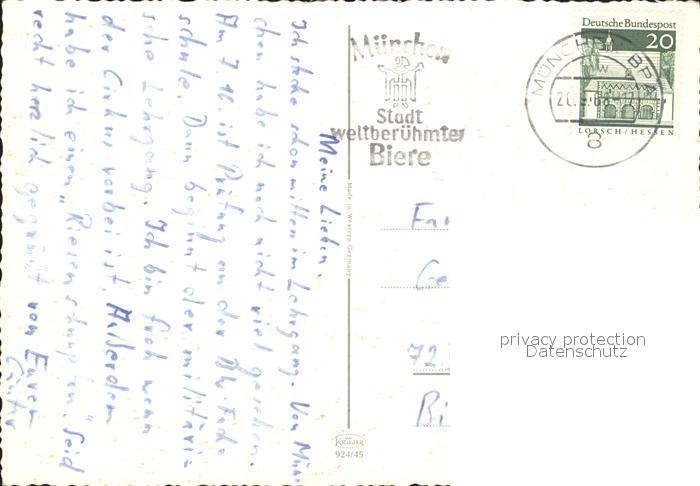 Meine Lieben.
Ich stecke schon mitten im Lehrgang. Von Mün
chen habe ich noch nicht viel gesehen.
Am 7.10 ist Prüfung an der
schule. Dann beginnt der militäri-
sche Lehrgang. Ich bin froh wenn
der Cirkus vorbei ist. Außerdem
habe ich einen „Riesenschnupfen." Seid
recht herzlich gegrüßt von Eurem
Günter
München
Stadt
weltberühmter
Biere
Deutsche Bundespost
20
LORSCH/HESSEN
MÜNCHEN BPA
8
Made in Western Germany
KRÜGER
924/45
72
Bi
privacy protection
Datenschutz